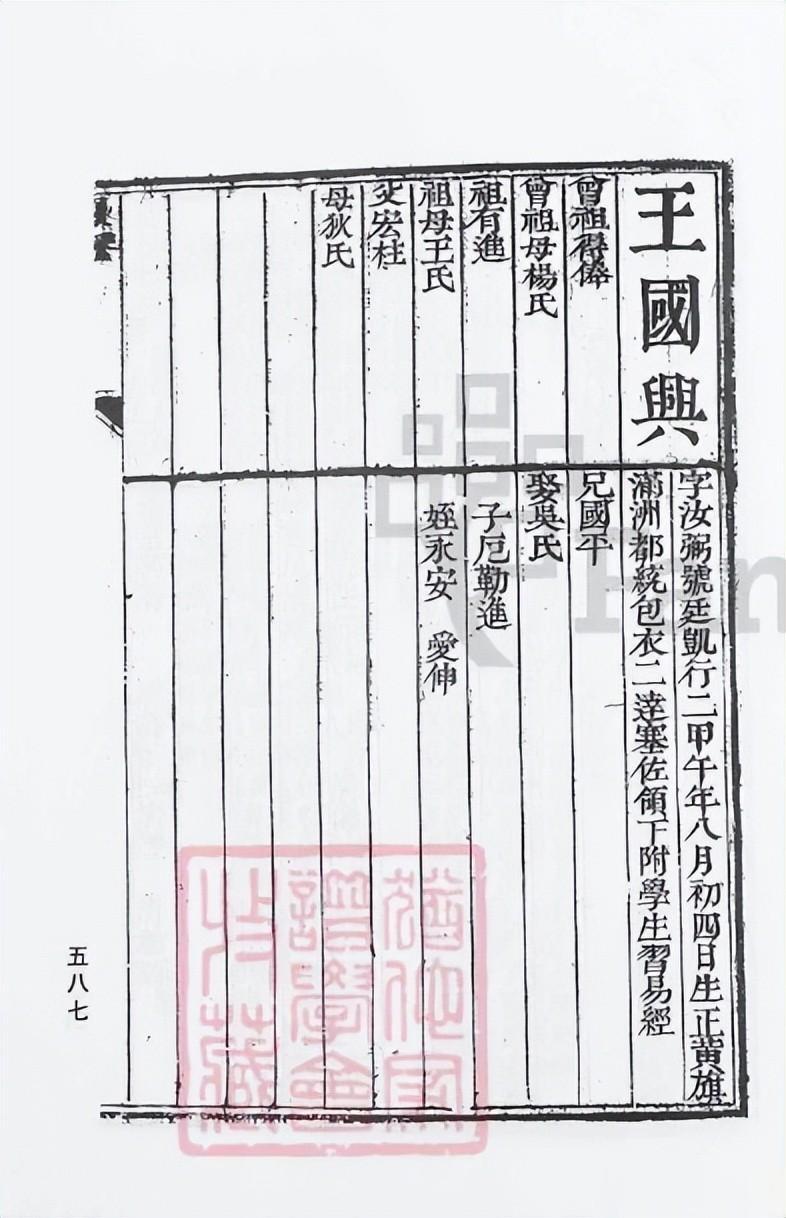 王國興
字汝弼號廷凱行二甲午年八月初四日生正黃旗
滿洲都統包衣二達塞佐領下附學生習易經
曾祖得俸
兄國平
曾祖母楊氏
娶吳氏
祖有進
子卮勒進
祖母王氏
姪永安 愛伸
父宏柱
母狄氏
五八七
譜學會